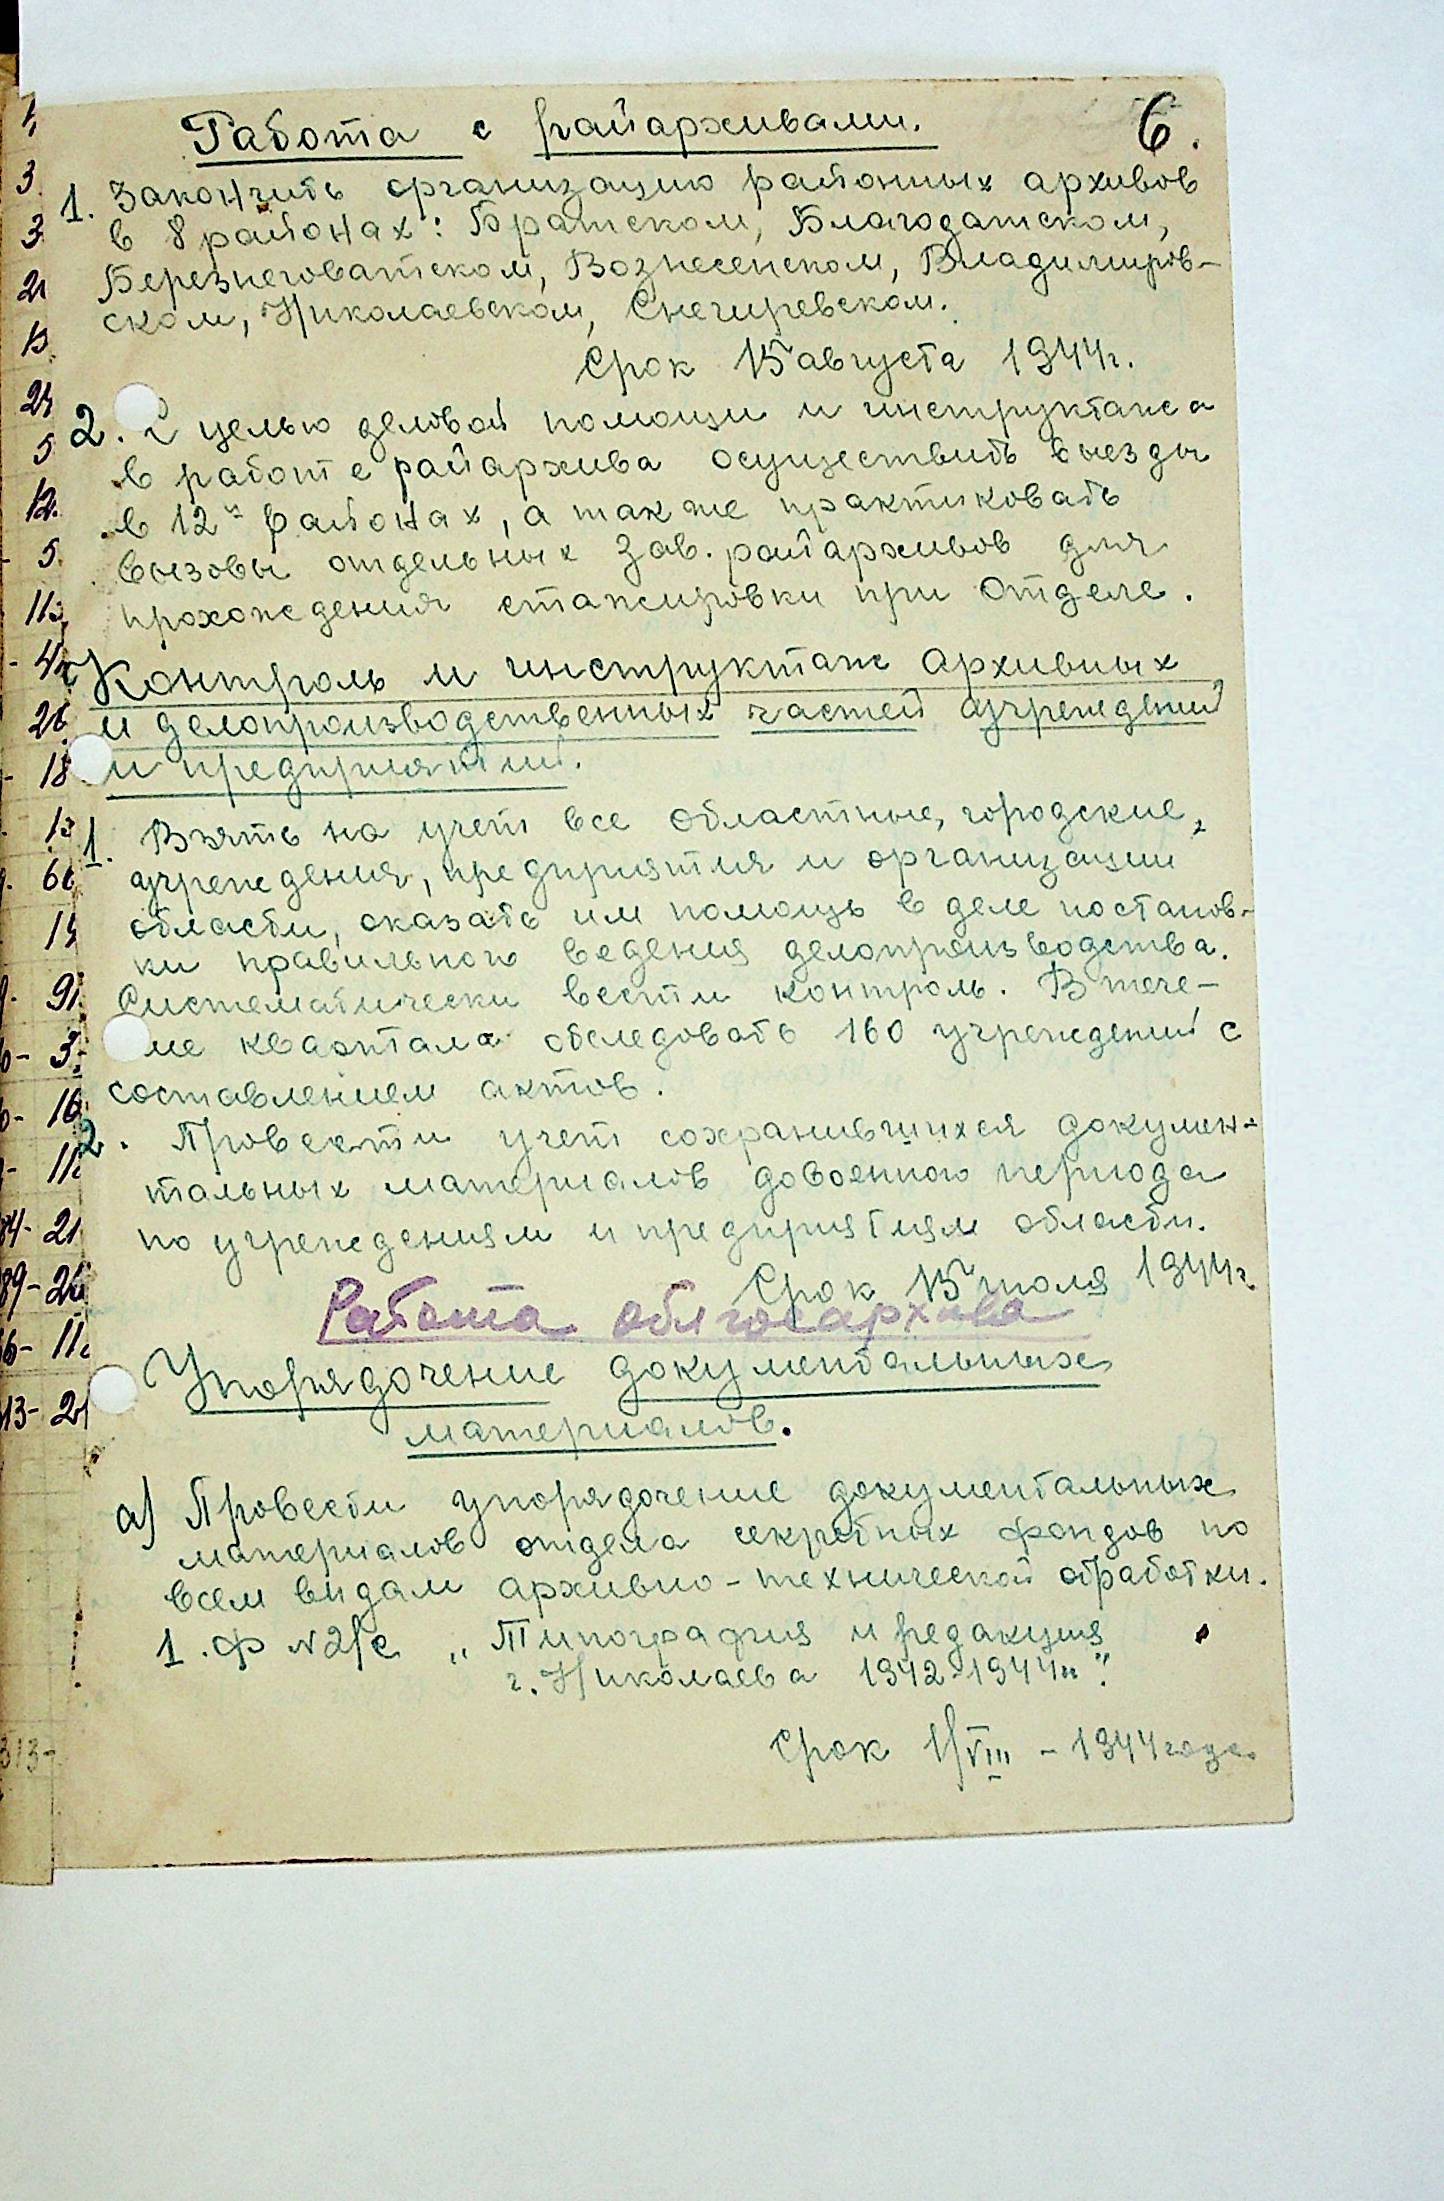 6.
Работа с райархивами.
1. Закончить организацию районных архивов
в 8 районах: Братском, Благодатском,
Березнеговатском, Вознесенском, Владимиров-
ском, Николаевском, Снегиревском.
Срок 15 августа 1944г.
2. С целью деловой помощи и инструктажа
в работе райархива осуществить выезды
в 12 районах, а также практиковать
вызовы отдельных зав. райархивов для
прохождения стажировки при Отделе.
Контроль и инструктаж архивных
и делопроизводственных частей учреждений
и предприятий.
1. Взять на учет все областные, городские,
учреждения, предприятия и организации
области, оказать им помощь в деле постанов-
ки правильного ведения делопроизводства.
Систематически вести контроль. В тече-
ние квартала обследовать 160 учреждений с
составлением актов.
2. Провести учет сохранившихся докумен-
тальных материалов довоенного периода
по учреждениям и предприятиям области.
Срок 15 июля 1944г.
Работа облгосархива
Упорядочение документальных
материалов.
а) Провести упорядочение документальных
материалов отдела секретных фондов по
всем видам архивно-технической обработки.
1. Ф N2/с „Типография и редакция
г. Николаева 1942-1944гг".
Срок 1/VIII - 1944 года.
3
3
21
13
24
5
12.
5.
11
4
26
18
13
66
15
91
3
16
11
84-21
89-26
36-11
13-21
313-